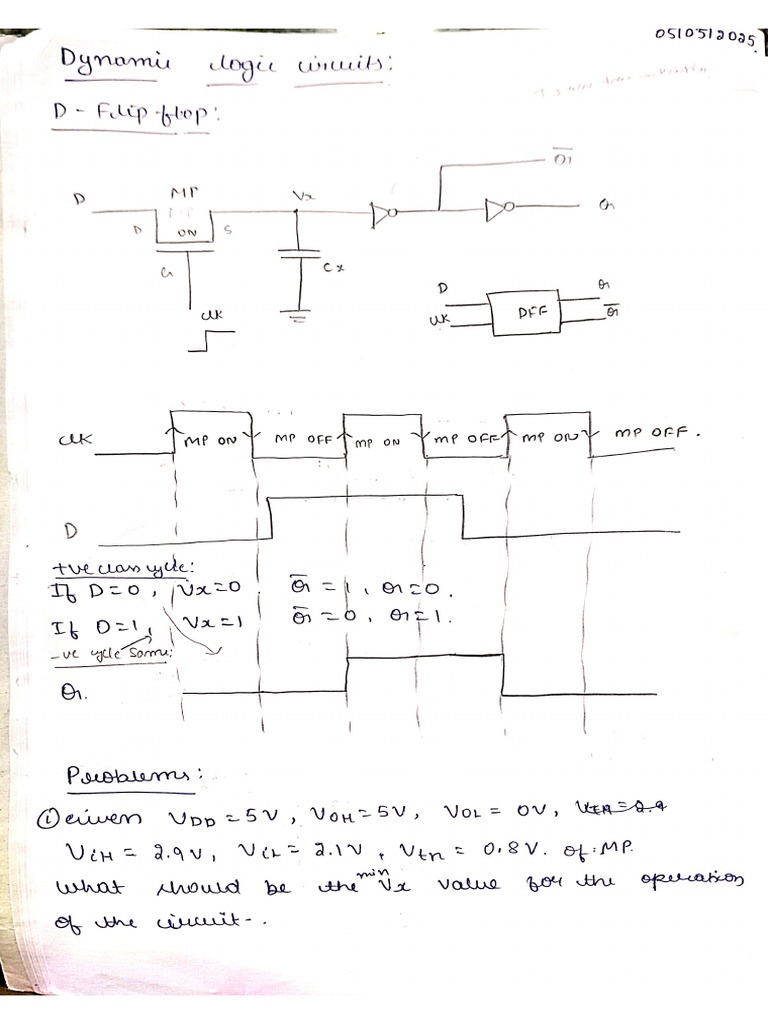 05/05/2025.
Dynamic logic circuits:
D - Flip-flop:
Q̅
D MP Vx Q
D ON S
G Cx
clk
D Q
clk DFF Q̅
clk MP ON MP OFF MP ON MP OFF MP ON MP OFF.
D
+ve class cycle:
If D=0, Vx=0 Q̅ = 1, Q=0.
If D=1, Vx=1 Q̅ = 0, Q=1.
-ve cycle Same:
Q.
Problems:
① Given VDD = 5V, VOH = 5V, VOL = 0V,
ViH = 2.9V, ViL = 2.1V, Vtn = 0.8V. of MP.
What should be the min Vx value for the operation
of the circuit-.